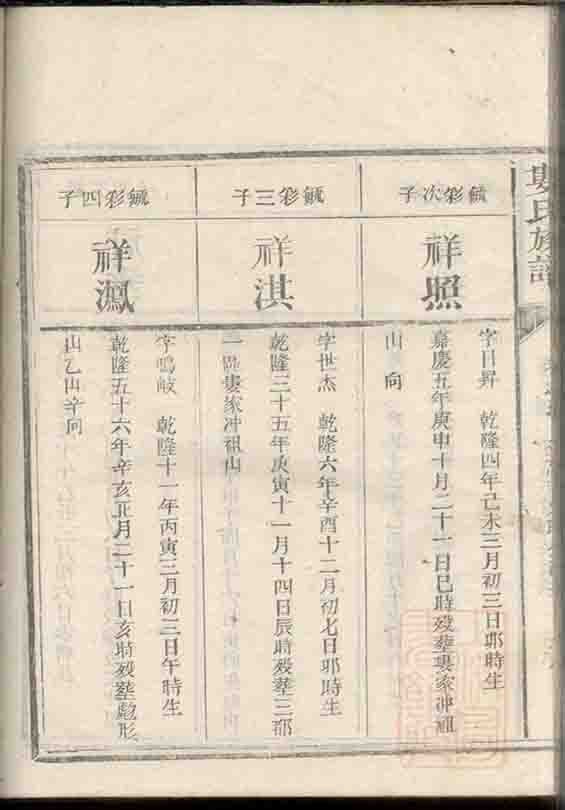 婁氏族譜
毓彩次子
祥照
字日昇 乾隆四年己未三月初三日耶時生
嘉慶五年庚申十月二十一日巳時殁塟婁家冲祖
山 向
毓彩三子
祥淇
字世杰 乾隆六年辛酉十二月初七日耶時生
乾隆三十五年庚寅十一月十四日辰時殁塟三都
二區婁家冲祖山
毓彩四子
祥鳳
字鳴岐 乾隆十一年丙寅三月初三日午時生
乾隆五十六年辛亥正月二十一日亥時殁塟彪形
山乙山辛向